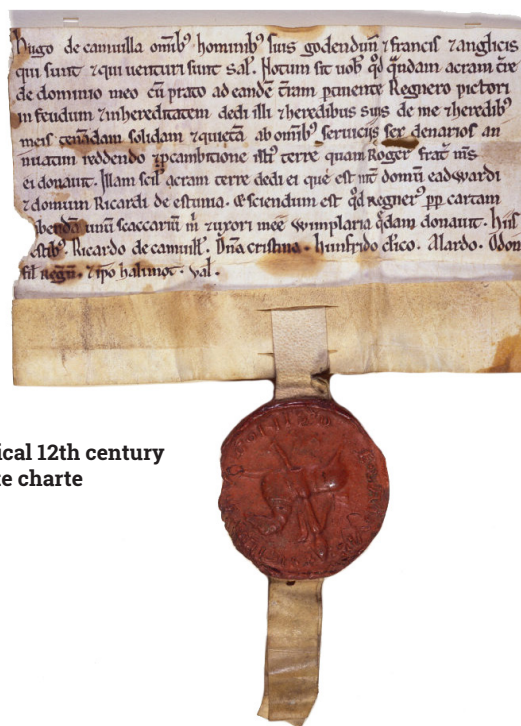 Hugo de camuilla om̄ib⁹ hominib⁹ suis godendun̄ ⁊ francis ⁊ anglicis
qui sunt ⁊ qui uenturi sunt sal̄. Notum sit uob⁹ qd̄ q̄ndam acram t̄re
de dominio meo cū prato ad eandē t̄ram ꝑtinente Regnero pictori
in feudum ⁊ inhereditatem dedi illi ⁊ heredibus suis de me ⁊ heredib⁹
meis tenēdam solidam ⁊ quietā ab om̄ib⁹ seruiciis sex denarios an
nuatim reddendo ⁊ ꝑcambitione illi⁹ terre quam Roger⁹ frat̄ m̄s
ei donauit. Illam scil̄ acram terre dedi ei que est int̄ domū eadwardi
⁊ domum Ricardi de estunia. Et sciendum est qd̄ Regner⁹ ꝓp cartam
ibendā unū scaccariū m̄ ⁊ uxori meę Wimplaria q̄dam donauit. his
estib⁹. Ricardo de camuill̄. Dn̄a cristina. hunfrido clico. Alardo. Odon
fil Regn̄. ⁊ ip̄o halimot. val.
ical 12th century
te charte